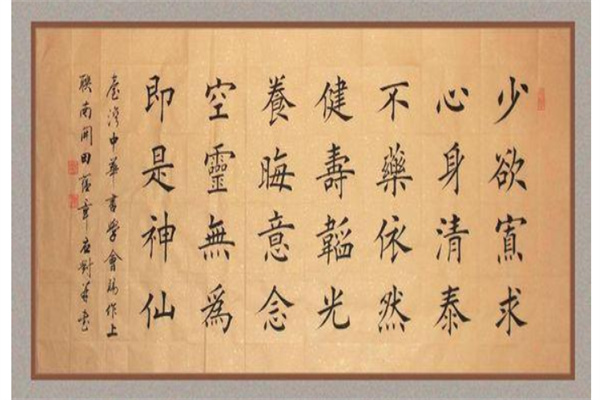 少欲寡求
心身清泰
不藥依然
健壽韜光
養晦意念
空靈無爲
即是神仙
臺灣中華書學會作上
聯南開田蘊章應對並書